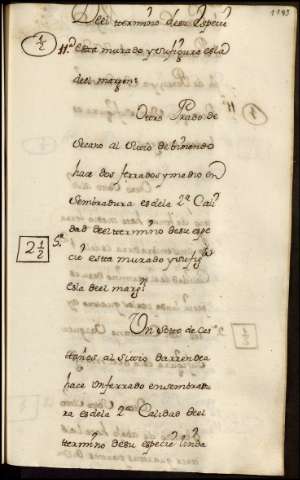 1193
Deel termino desu Especie
1/2 esta murado ysufigura esla
del margen
Otro Prado de
Secano al Sitio de
hace dos ferrados ymedio en
Sembradura es dela 2ª Cali
dad deel termino desu espe
2 1/2 cie esta murado ysufigª
esla del margn
Un Soto de Cas
taños al Sitio
hace Unferrado ensembradu
ra es dela 2ª Calidad deel
termino desu especie linda